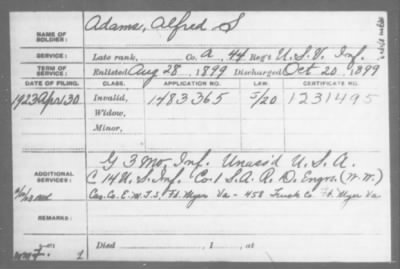 NAME OF SOLDIER: Adams, Alfred S
SERVICE: Late rank, Co. A, 44 Reg't U.S.V. Inf.
TERM OF SERVICE: Enlisted Aug 28, 1899 Discharged Oct 20, 1899
DATE OF FILING. CLASS. APPLICATION NO. LAW. CERTIFICATE NO.
1923 Apr 30 Invalid, 1483365 5/20 1231495
Widow,
Minor,
ADDITIONAL SERVICES: G 3 Mo. Inf. Unass'd U.S.A.
C 14 U.S. Inf. Co. 1 S.A.R.D. Engrs. (W.W.)
Cas. Co. E.M.T.S, Ft. Myer Va - 458 Truck Co Ft. Myer Va
REMARKS:
Died , 1 , at